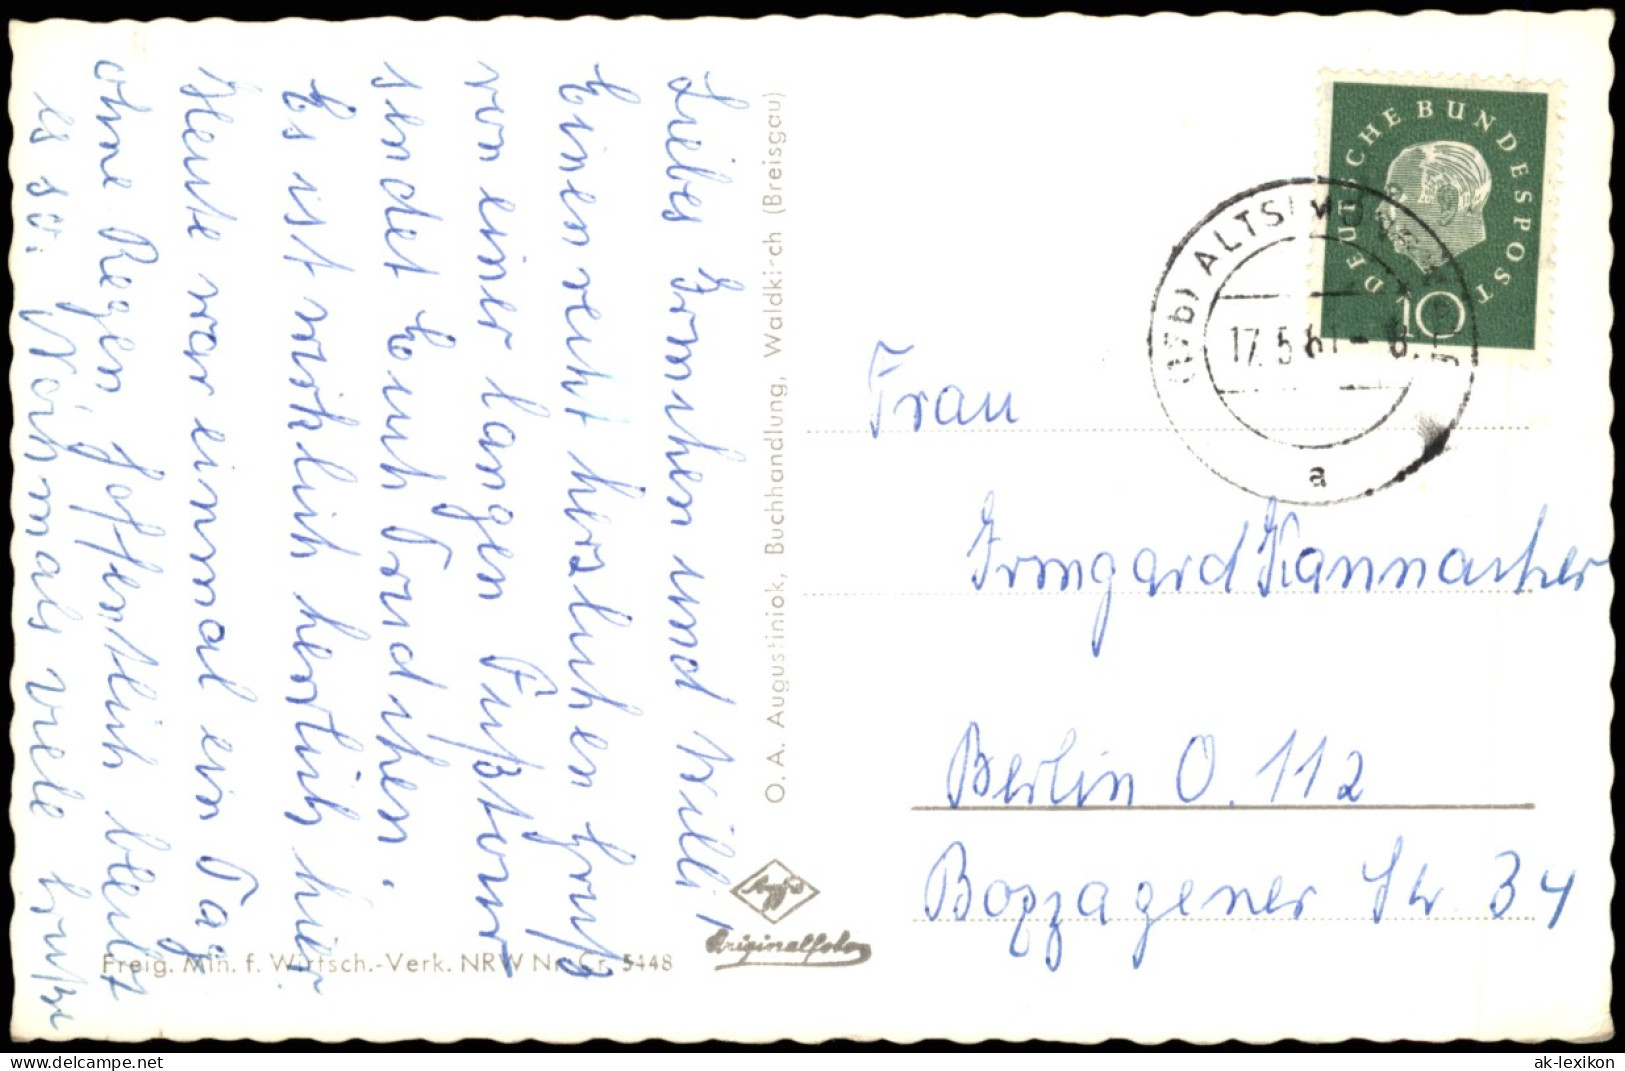 Liebes Irmchen und Willi!
Einen recht herzlichen Gruß
von einer langen Fußtour
sendet Euch Trudchen.
Es ist wirklich herrlich hier
Heute war einmal ein Tag
ohne Regen hoffentlich bleibt
es so. Nochmals viele Grüße
O. A. Augustiniok, Buchhandlung, Waldkirch (Breisgau)
DEUTSCHE BUNDESPOST
10
ALTSIMONSWALD
17.5.61-8
a
Frau
Irmgard Kannacher
Berlin O. 112
Boxhagener Str 34
Agfa
Originalfoto
Freig. Min. f. Wirtsch.-Verk. NRW Nr. Gr. 5448
www.delcampe.net
ak-lexikon